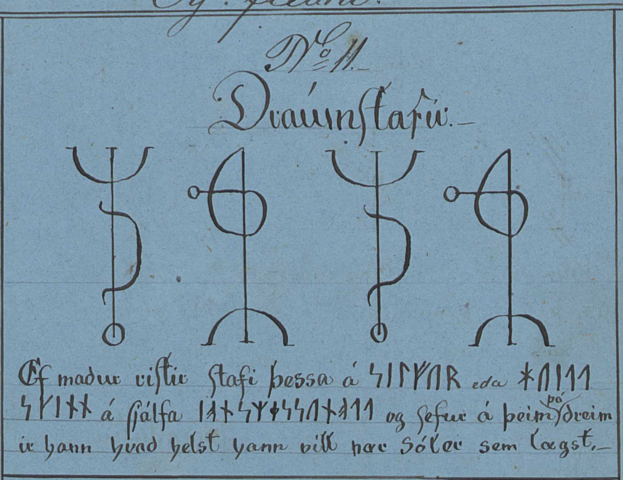 No 11.
Draúmstafir.
Ef madur ristir stafi þessa á ᛋᛁᛚᚠᚢᚱ eda ᚼᚢᛁᛐᛐ
ᛋᚴᛁᚾᚾ á sjálfa ᛁᚭᚾᛋᛘᛂᛋᛋᚢᚾᚭᛐᛐ og sefur á þeim þá dreim
ir hann hvad helst hann vill nær Sól er sem lægst.